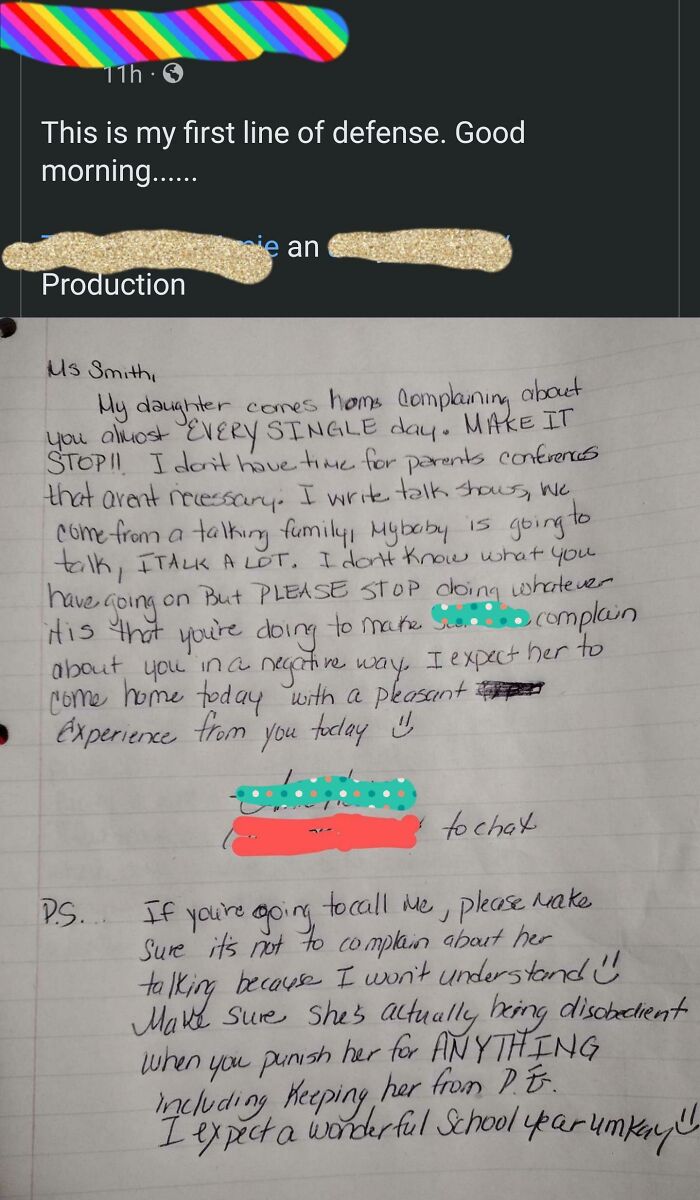 11h ·
This is my first line of defense. Good
morning......
an
Production
Ms Smith,
My daughter comes home Complaining about
you almost EVERY SINGLE day. MAKE IT
STOP!! I don't have time for parents conferences
that arent necessary. I write talk shows, We
come from a talking family, My baby is going to
talk, I TALK A LOT. I don't know what you
have going on But PLEASE STOP doing whatever
it is that you're doing to make complain
about you in a negative way. I expect her to
come home today with a pleasant
Experience from you today
to chat
P.S... If you're going to call Me, please Make
Sure it's not to complain about her
talking because I won't understand
Make Sure She's actually being disobedient
when you punish her for ANYTHING
including Keeping her from P.E.
I expect a wonderful School year umkay